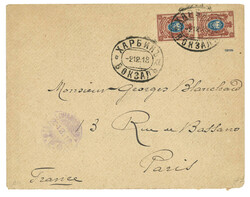 ХАРБИНЪ
2 12 13
ВОКЗАЛЪ
Monsieur Georges Blanchard
3 Rue de Bassano
Paris
France